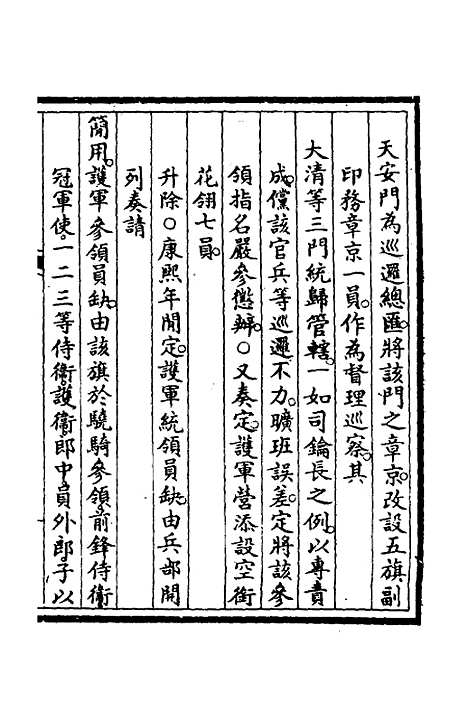 天安門為巡邏總匯。將該門之章京。改設五旗副
印務章京一員。作為督理巡察。其
大清等三門統歸管轄。一如司鑰長之例。以專責
成。儻該官兵等巡邏不力。曠班誤差。定將該參
領指名嚴參懲辦。○又奏定。護軍營添設空銜
花翎七員。
升除○康熙年閒定。護軍統領員缺。由兵部開
列奏請
簡用。護軍參領員缺。由該旗於驍騎參領。前鋒侍衛
冠軍使。一二三等侍衛。護衛。郎中。員外郎。子以